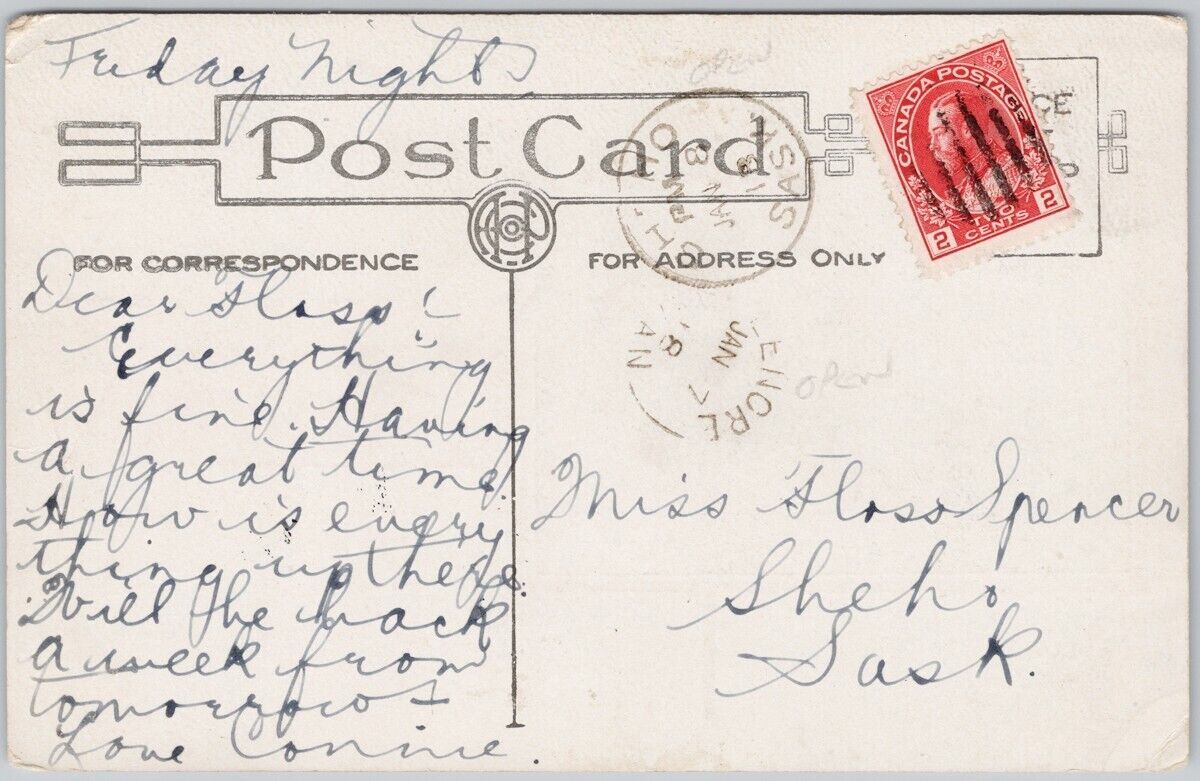 Friday Night
OPEN
Post Card
CANADA POSTAGE
2 TWO CENTS 2
SHEHO
PM
JA 8
18
SASK
FOR CORRESPONDENCE
FOR ADDRESS ONLY
LENORE
JAN 7
18
AN
OPEN
Dear Floss:
Everything
is fine. Having
a great time.
How is every
thing up there.
Will be back
a week from
tomorrow
Love Connie
Miss Floss Spencer
Sheho
Sask.